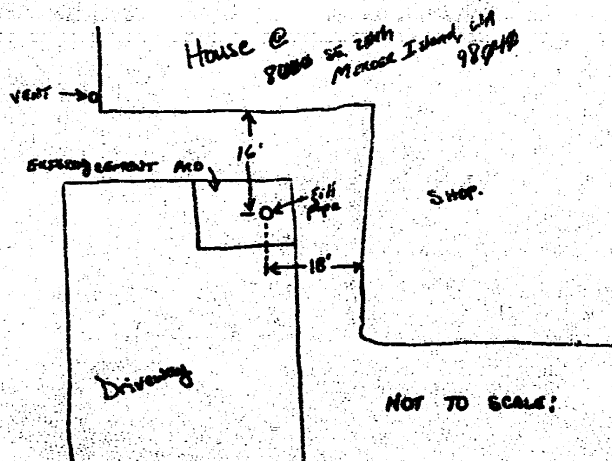 House @
SE 28th
Mercer Island, WA
98040
VENT
16'
EXISTING CEMENT PAD
Fill
Pipe
SHOP.
18'
Driveway
NOT TO SCALE: